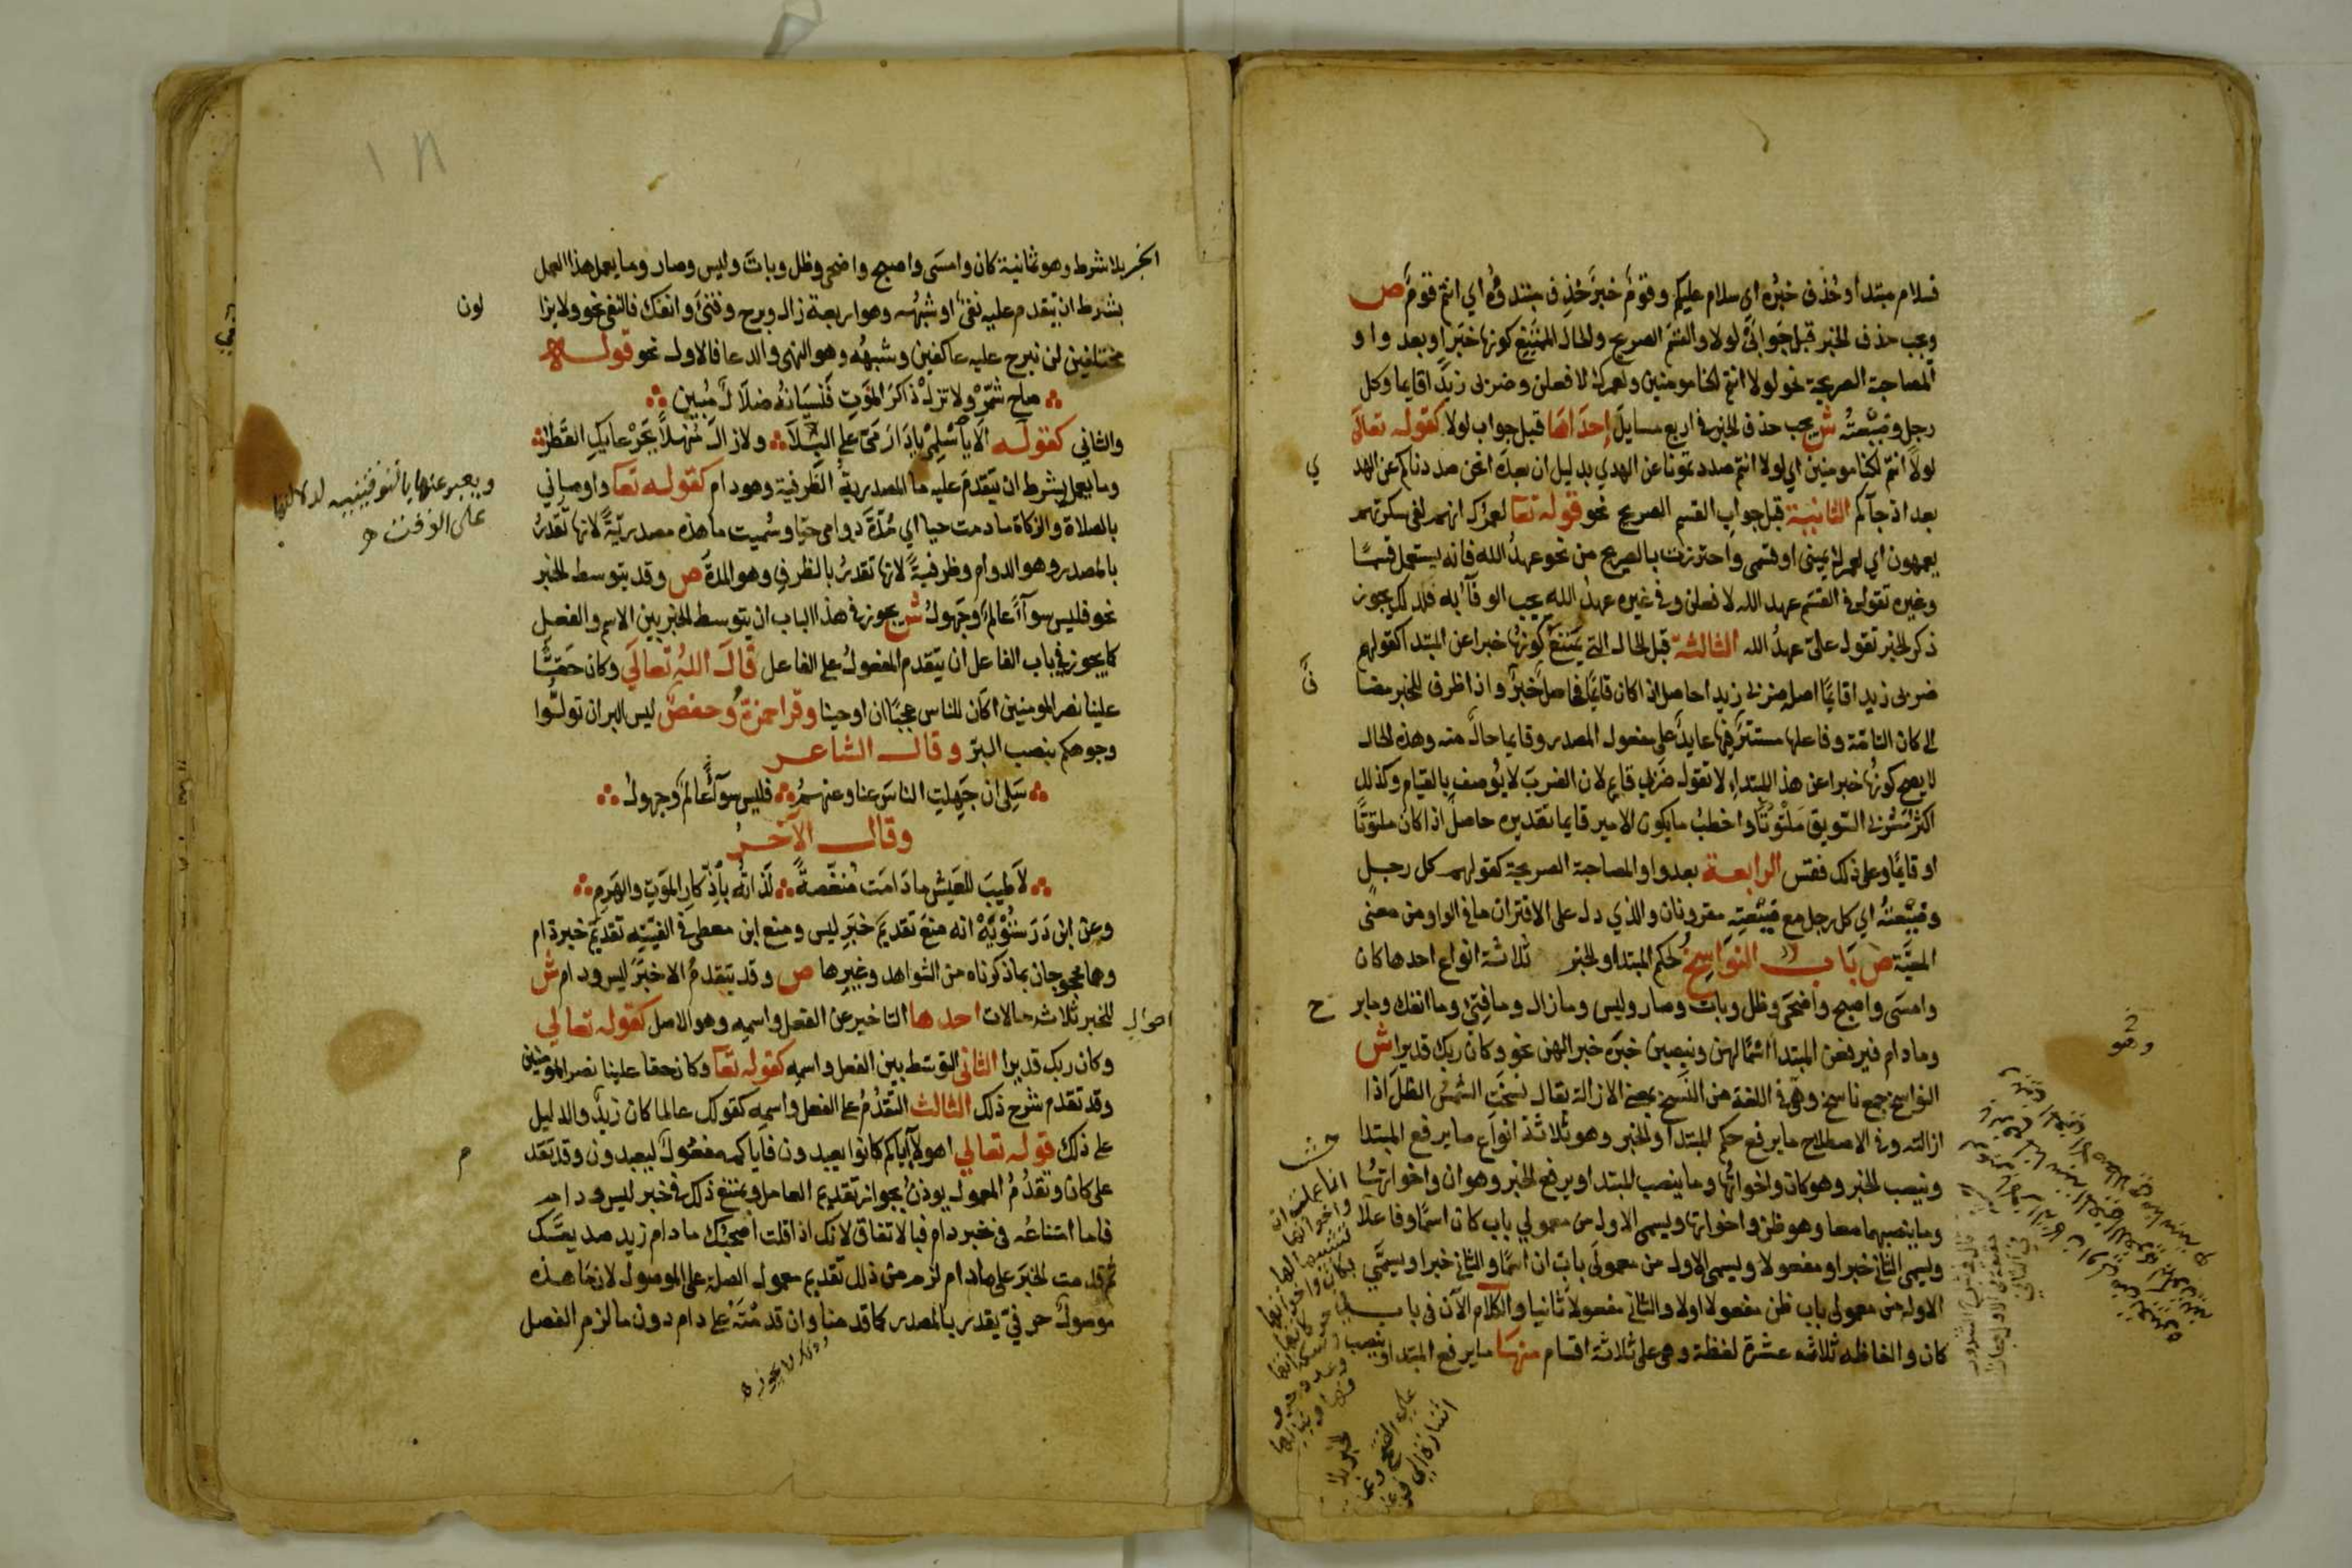 فسلام مبتدأ وحُذف خبره اي سلام عليكم وقومٌ خبرٌ حُذِف مبتدؤه اي انتم قومٌ ص
ويجب حذف الخبر قبل جوابَيْ لولا والقسم الصريح والحال الممتنع كونها خبرا وبعد واو
المصاحبة الصريحة نحو لولا انتم لكنا مومنين ولعمرك لافعلن وضربى زيدا قايما وكل
رجل وضيعتُه ش يجب حذف الخبر في اربع مسايل إحداها قبل جواب لولا كقوله تعالى
لولا انتم لكنا مومنين اي لولا انتم صددتمونا عن الهدي بدليل ان بعده انحن صددناكم عن الهدي
بعد اذ جآكم الثانية قبل جواب القسم الصريح نحو قوله تعا لعمرك انهم لفى سكرتهم
يعمهون اي لعمرك يمينى او قسمى واحترزت بالصريح من نحو عهدُ الله فانه يستعمل قسمًا
وغيره تقول في القسم عهد الله لافعلن وفي غيره عهدُ الله يجب الوفآ به فلذلك يجوز
ذكر الخبر تقول علىّ عهدُ الله الثالثة قبل الحال التي يمتنع كونُها خبرا عن المبتدا كقولهم
ضربى زيدا قايمًا اصله ضربى زيدا حاصل اذا كان قايمًا فحاصل خبرٌ واذا ظرف للخبر مضا فٌ
الى كان التامّة وفاعلها مستترٌ فيها عايدٌ على مفعول المصدر وقايما حال منه وهذه الحال
لا يصح كونُها خبرا عن هذا المبتداء لا تقول ضربي قايم لان الضربَ لا يُوصف بالقيام وكذلك
اكثر شربي السويق ملتوتًا واخطبُ ما يكون الامير قايما تقديره حاصل اذا كان ملتوتًا
او قايمًا وعلى ذلك فقس الرابعة بعد واو المصاحبة الصريحة كقولهم كل رجلٍ
وضيعتُه اي كل رجل مع ضيعتِه مقرونان والذي دل على الاقتران ما في الواو من معنى
المعيّة ص بَاب النواسِخُ لحكم المبتدا والخبر ثلاثة انواع احدها كان
وامسَى واصبح واضحَى وظل وبات وصار وليس وما زال وما فتئ وما انفك وما برح
وما دام فيرفعن المبتدا اسْمًا لهن وينصِبن خبرَه خبرا لهن نحو وكان ربك قديرا ش
النواسخ جمع ناسخ وهو في اللغة من النَسخ بمعنى الازالة يقال نسخَتِ الشمسُ الظلَ اذا
ازالته وفي الاصطلاح ما يرفع حكم المبتدا والخبر وهو ثلاثة انواع ما يرفع المبتدا
وينصب الخبر وهو كان واخواتُها وما ينصب المبتدا ويرفع الخبر وهو ان واخواتُها
وما ينصبهما معا وهو ظن واخواتها ويسمى الاول من معمولي باب كان اسمًا وفاعلا
ويسمى الثاني خبرا ومفعولا ويسمى الاول من معمولَى باب ان اسمًا والثاني خبرا ويسمَّى
الاول من معمولى باب ظن مفعولا اولا والثاني مفعولا ثانيا والكلام الآن في باب
كان والفاظه ثلاثه عشرة لفظة وهى على ثلاثة اقسام منها ما يرفع المبتدا وينصب
وهو
الخبر بلا شرط وهو ثمانية كان وامسَى واصبح واضحى وظل وباتَ وليس وصار وما يعمل هذا العمل
بشرط ان يتقدم عليه نفىٌ او شبهُه وهو اربعة زال وبرح وفتئ وانفك فالنفى نحو ولا يزا لون
مختلفين لن نبرح عليه عاكفين وشبهُه وهو النهى والدعا فالاول نحو قوله
صاحِ شمّرْ ولا تزلْ ذاكرَ الموتِ فنسيانُه ضلالٌ مُبين
والثاني كقوله الَا يآ اسْلِمى يا دارَ مَىَّ على البِلَا ولا زالَ مُنهلًّا بجَرْعايكِ القَطر
وما يعمل بشرط ان يتقدم عليه ما المصدريةُ الظرفية وهو دام كقوله تعا واوصانى
بالصلاة والزكاة ما دمت حيا اي مُدّةَ دوامى حيّا وسُميت ما هذه مصدريّةً لانها تقدرُ
بالمصدر وهو الدوام وظرفيةً لانها تقدرُ بالظرف وهو المدةُ ص وقد يتوسط الخبر
نحو فليس سوآءً عالمٌ وجَهولُ ش يجوز في هذا الباب ان يتوسط الخبر بين الاسم والفعل
كما يجوز في باب الفاعل ان يتقدم المفعولُ على الفاعل قالَ اللهُ تعالَى وكان حَقًّا
علينا نصر المومنين اكان للناس عجبًا ان اوحينا وقرا حمزةُ وحفصٌ ليس البر ان تولُّوا
وجوهكم بنصب البرّ وقال الشاعر
سَلِى ان جَهِلتِ الناسَ عنا وعنهمُ فليس سوآءً عالمٌ وجهولُ
وقال الآخرُ
لَا طِيبَ للعَيش ما دَامَت مُنغّصةً لَذّاتُه بِاذّكارِ الموَتِ والهَرِمِ
وعن ابن دَرَسْتُوَيْهْ انه منعَ تقديمَ خبَرِ ليس ومنع ابن معطى في الفيّتِه تقديمَ خبر دام
وهما محجوجان بما ذكرناه من الشواهد وغيرِها ص وقد يتقدمُ الا خبرَ ليس ودام ش
للخبر ثلاثه حالات احدها التاخير عن الفعل واسمِه وهو الاصل كقوله تعالى
احوالِ
وكان ربك قديرا الثانى التوسّط بين الفعل واسمِه كقوله تعا وكان حقا علينا نصر المومنين
وقد تقدم شرح ذلك الثالث التّقدُمُ على الفعل واسمِه كقولك عالما كان زيدٌ والدليل
على ذلك قوله تعالى اهولآ اياكم كانوا يعبدون فاياكم مفعولٌ ليعبدون وقد تقد م
على كان وتقدُمُ المعمول يوذنُ بجواز تقديم العامل ويمتنع ذلك في خبر ليس ودام
فاما امتناعُه في خبر دام فبالاتفاق لانك اذا قلت اصحبُك ما دام زيد صديقَك
ثم قدمت الخبرَ على ما دام لزم من ذلك تقديم معمول الصلة على الموصول لان ما هذه
موصولٌ حرفيّ يقدر بالمصدر كما قدمنا وان قدمْتَه على دام دون ما لزم الفصل
ويعبر عنها بالتوقيتيه لدلالتها
على الوقت
وذلك لا يجوز